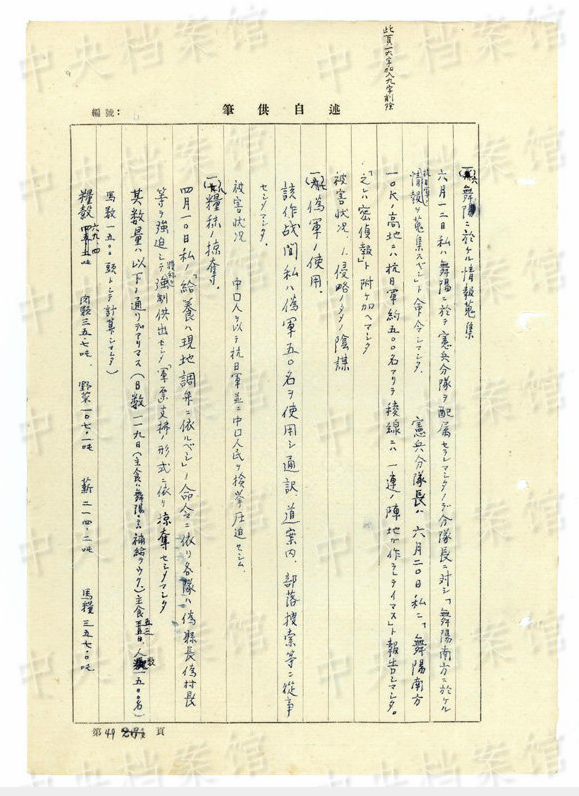 此頁一六字加入九字削除
編號：
筆供自述
舞陽ニ於ケル情報蒐集
六月一二日私ハ舞陽ニ於テ憲兵分隊ヲ配属セラレマシタノデ分隊長ニ対シ「舞陽南方ニ於ケル
情報ヲ蒐集スベシ」ト命令シマシタ。 憲兵分隊長ハ六月二〇日私ニ「舞陽南方
一〇粁ノ高地ニハ抗日軍約五〇〇名アリテ稜線ニハ一連ノ陣地ガ作ラレテイマス」ト報告シマシタ。
「之レハ密偵報」ト附ケ加ヘマシタ
被害状況 1.侵略ノタメノ陰謀
偽軍ノ使用.
該作战間私ハ偽軍五〇名ヲ使用シ通訳、道案内、部落捜索等ニ従事
セシメマシタ.
被害状況 中口人ヲ以テ抗日軍並ニ中口人民ヲ検挙圧迫セシム.
糧秣ノ掠奪.
四月一〇日私ノ「給養ハ現地調弁ニ依ルベシ」ノ命令ニ依リ各隊ハ偽縣長偽村長
等ヲ強迫シテ強制供出セシメ「軍票支拂」ノ形式ニ依リ掠奪セシメマシタ
其数量ハ以下ノ通リデアリマス(日数一一九日(主食ハ舞陽ニ補給ヲウク)主食五三日人数一五〇〇名)
馬数一五〇〇頭トシテ計算シマシタ)
糧穀 六九.四吨 肉類三五.七吨. 野菜一〇七.一吨 薪二一四.二吨 馬糧三五七.〇吨
第49頁
中央档案馆